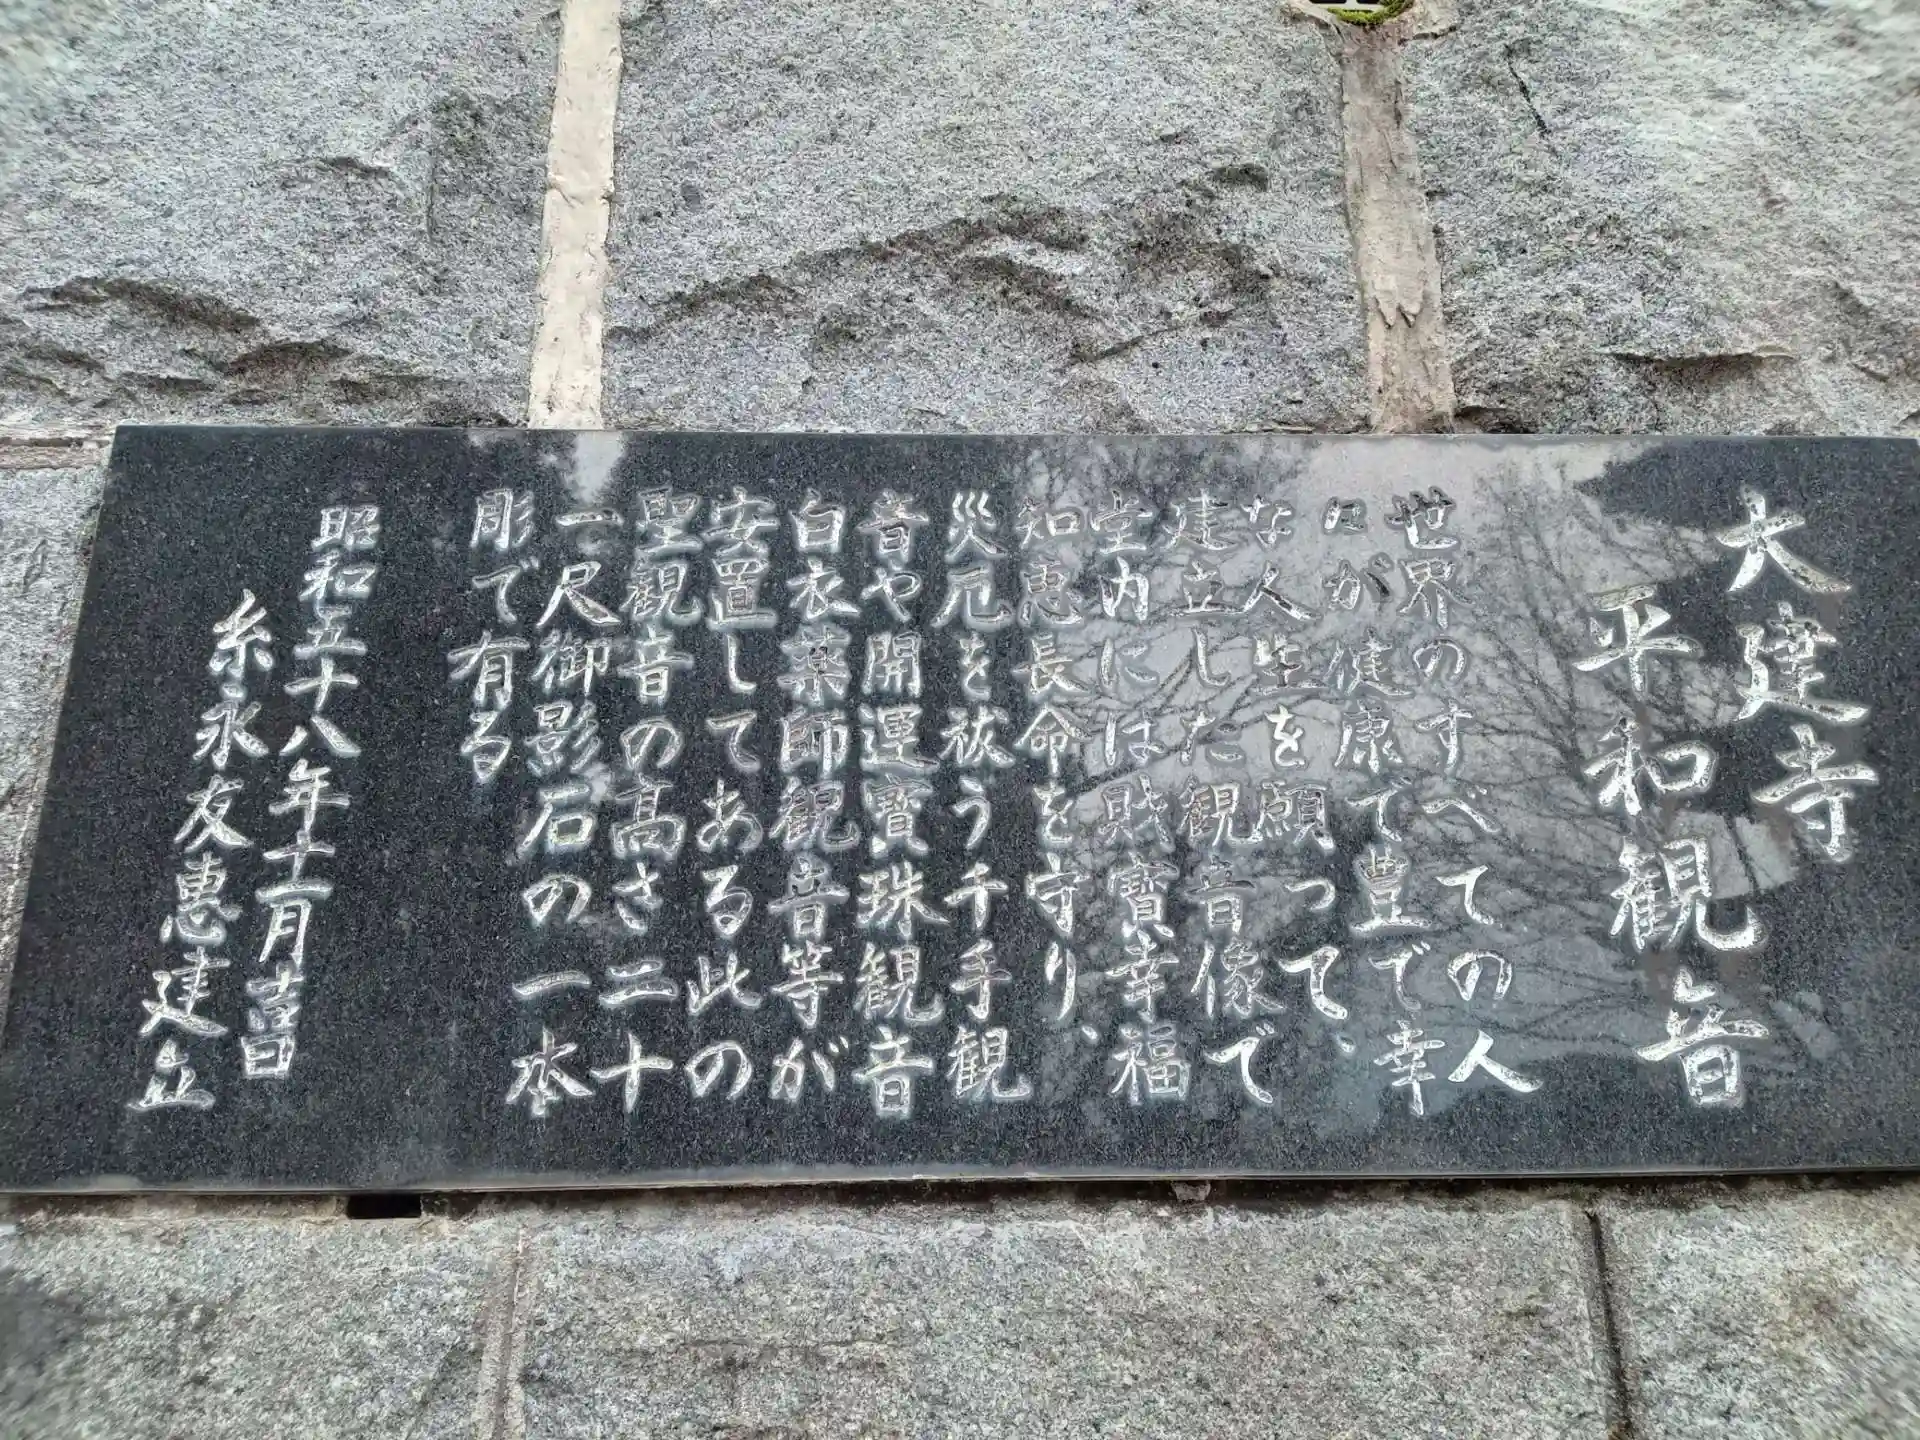 大建寺
平和観音
世界のすべての人
にが健康で豊で幸
な人生を願って、
建立した観音像で
堂内には財寶幸福
知恵長命を守り、
災厄を祓う千手観
音や開運寶珠観音
白衣薬師観音等が
安置してある此の
聖観音の高さ二十
一尺御影石の一本
彫で有る
昭和五十八年十一月吉日
糸永友恵建立